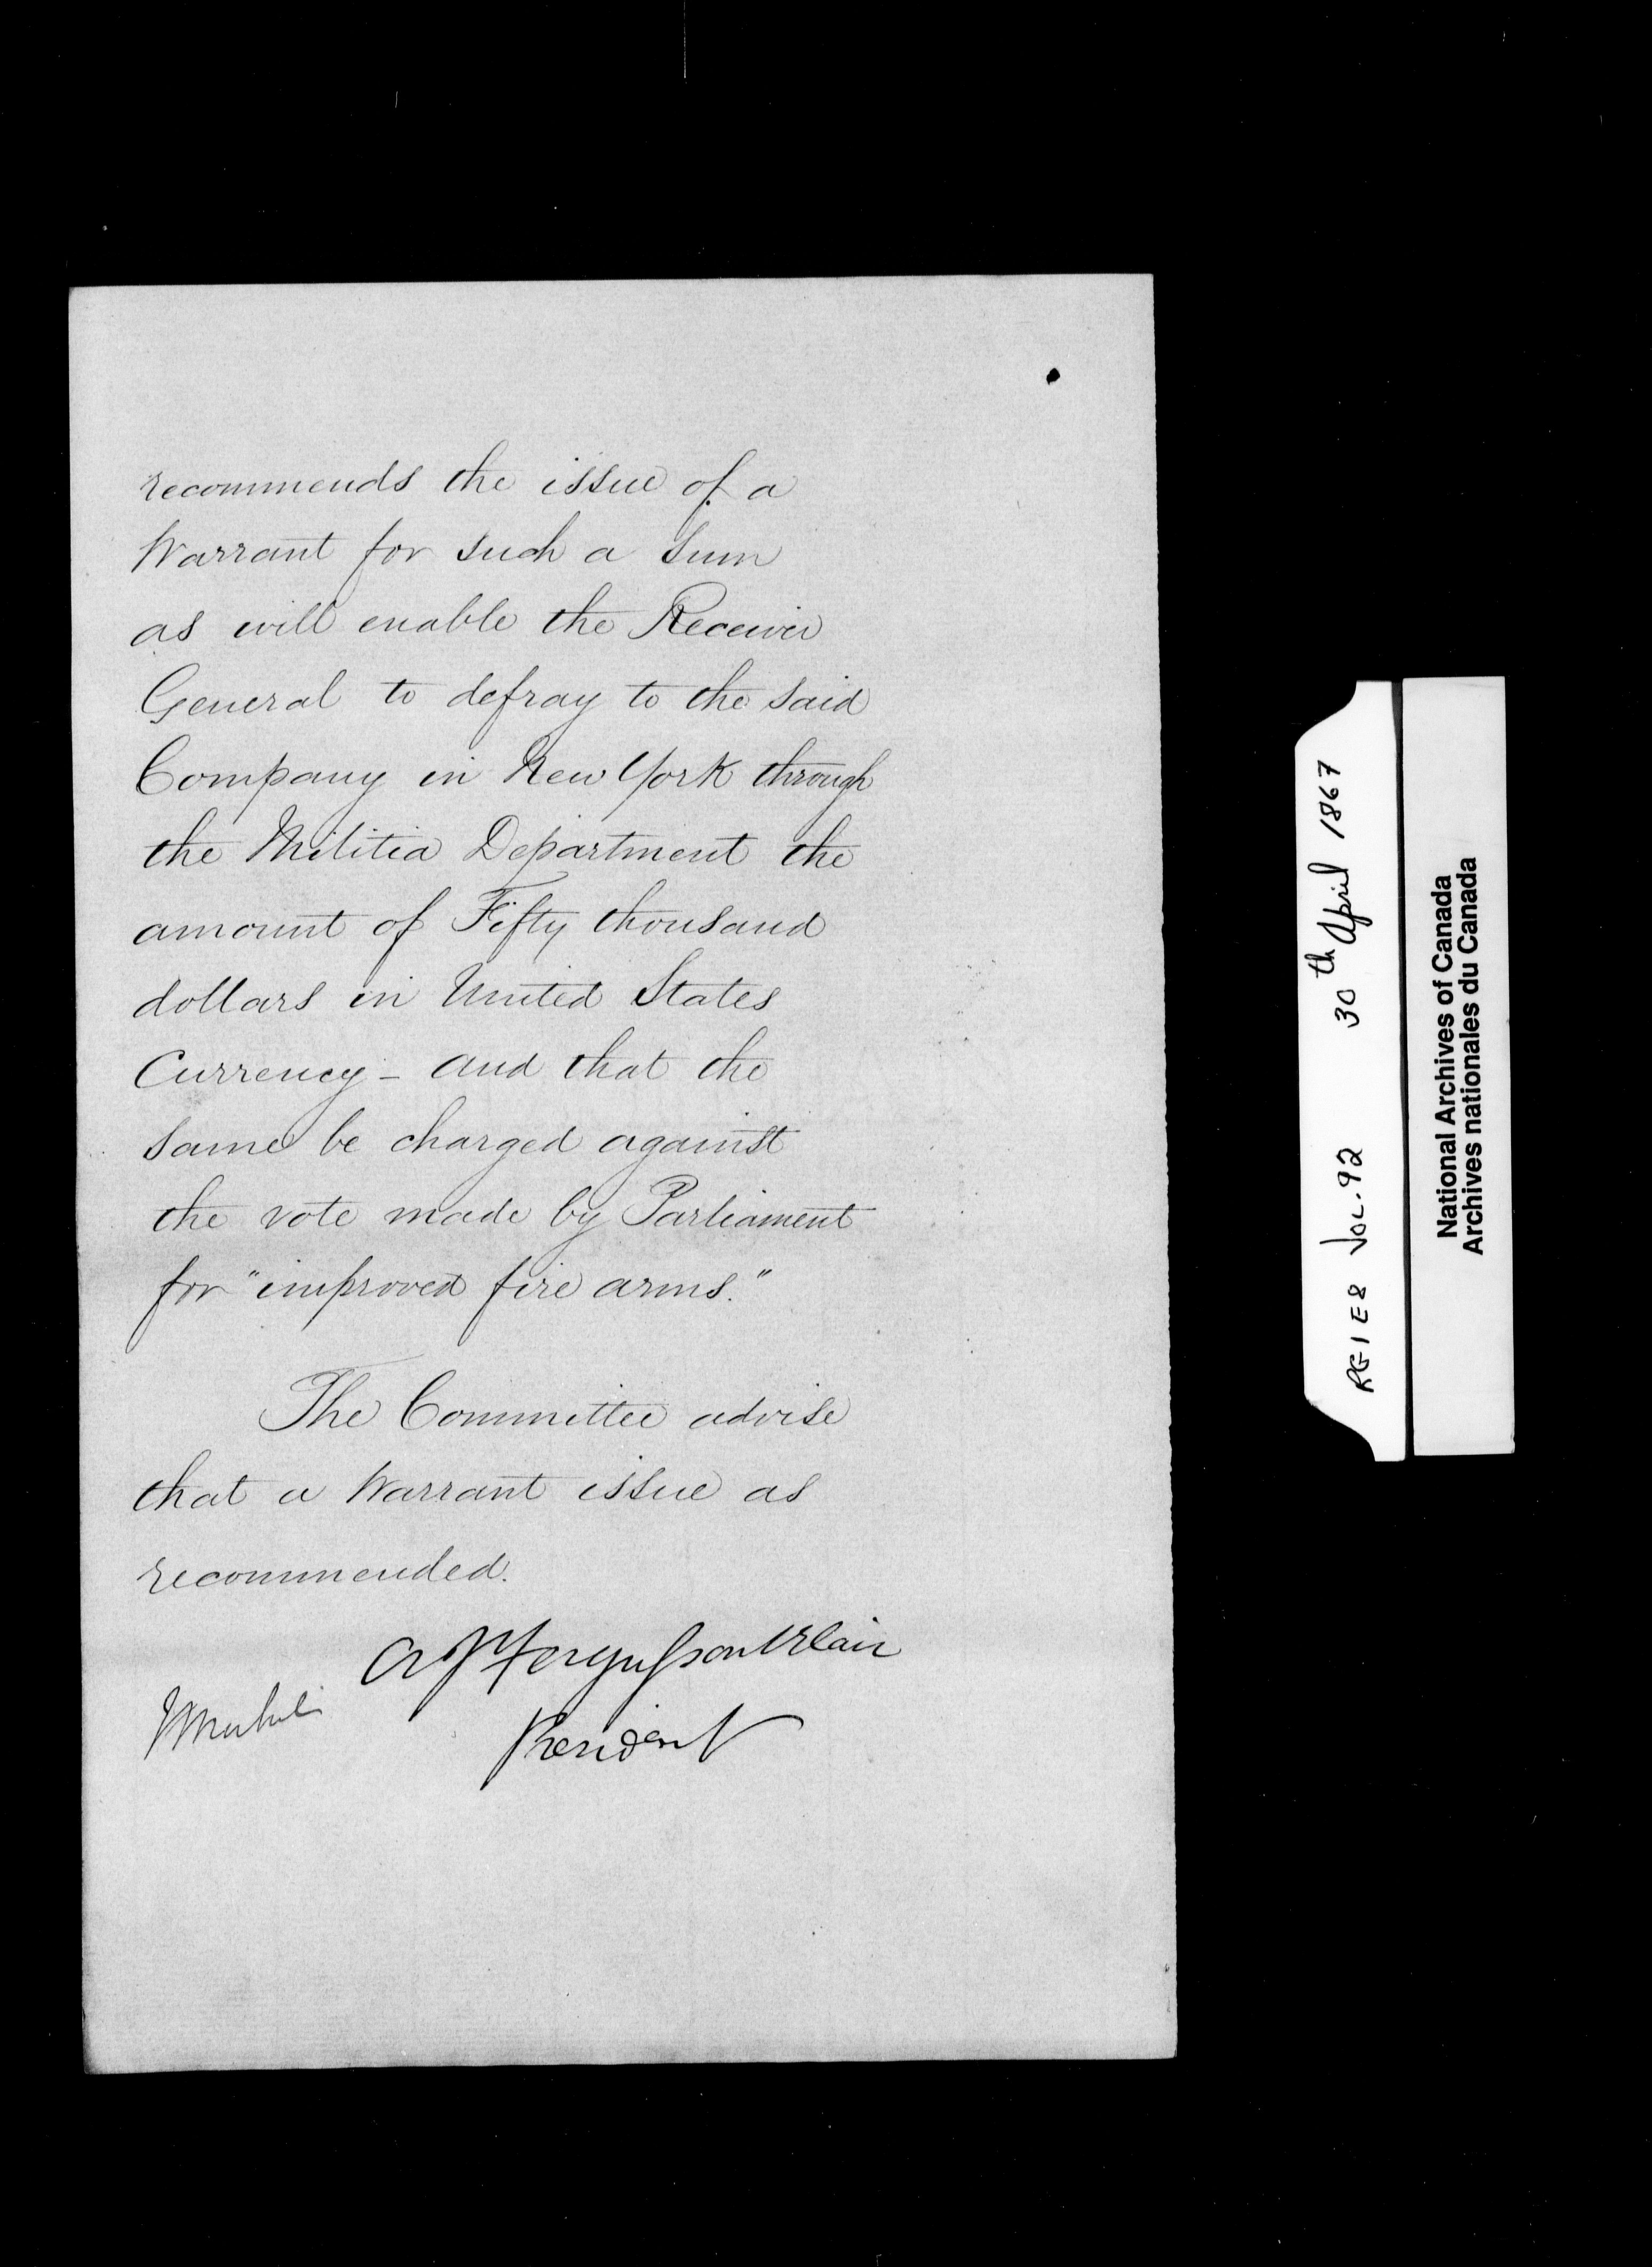 recommends the issue of a
Warrant for such a sum
as will enable the Receiver
General to defray to the said
Company in New York through
the Militia Department the
amount of Fifty thousand
dollars in United States
Currency - and that the
same be charged against
the vote made by Parliament
for "improved fire arms."
The Committee advise
that a Warrant issue as
recommended.
A J Fergusson Blair
President
RG1E8 VOL.92 30th April 1867
National Archives of Canada
Archives nationales du Canada